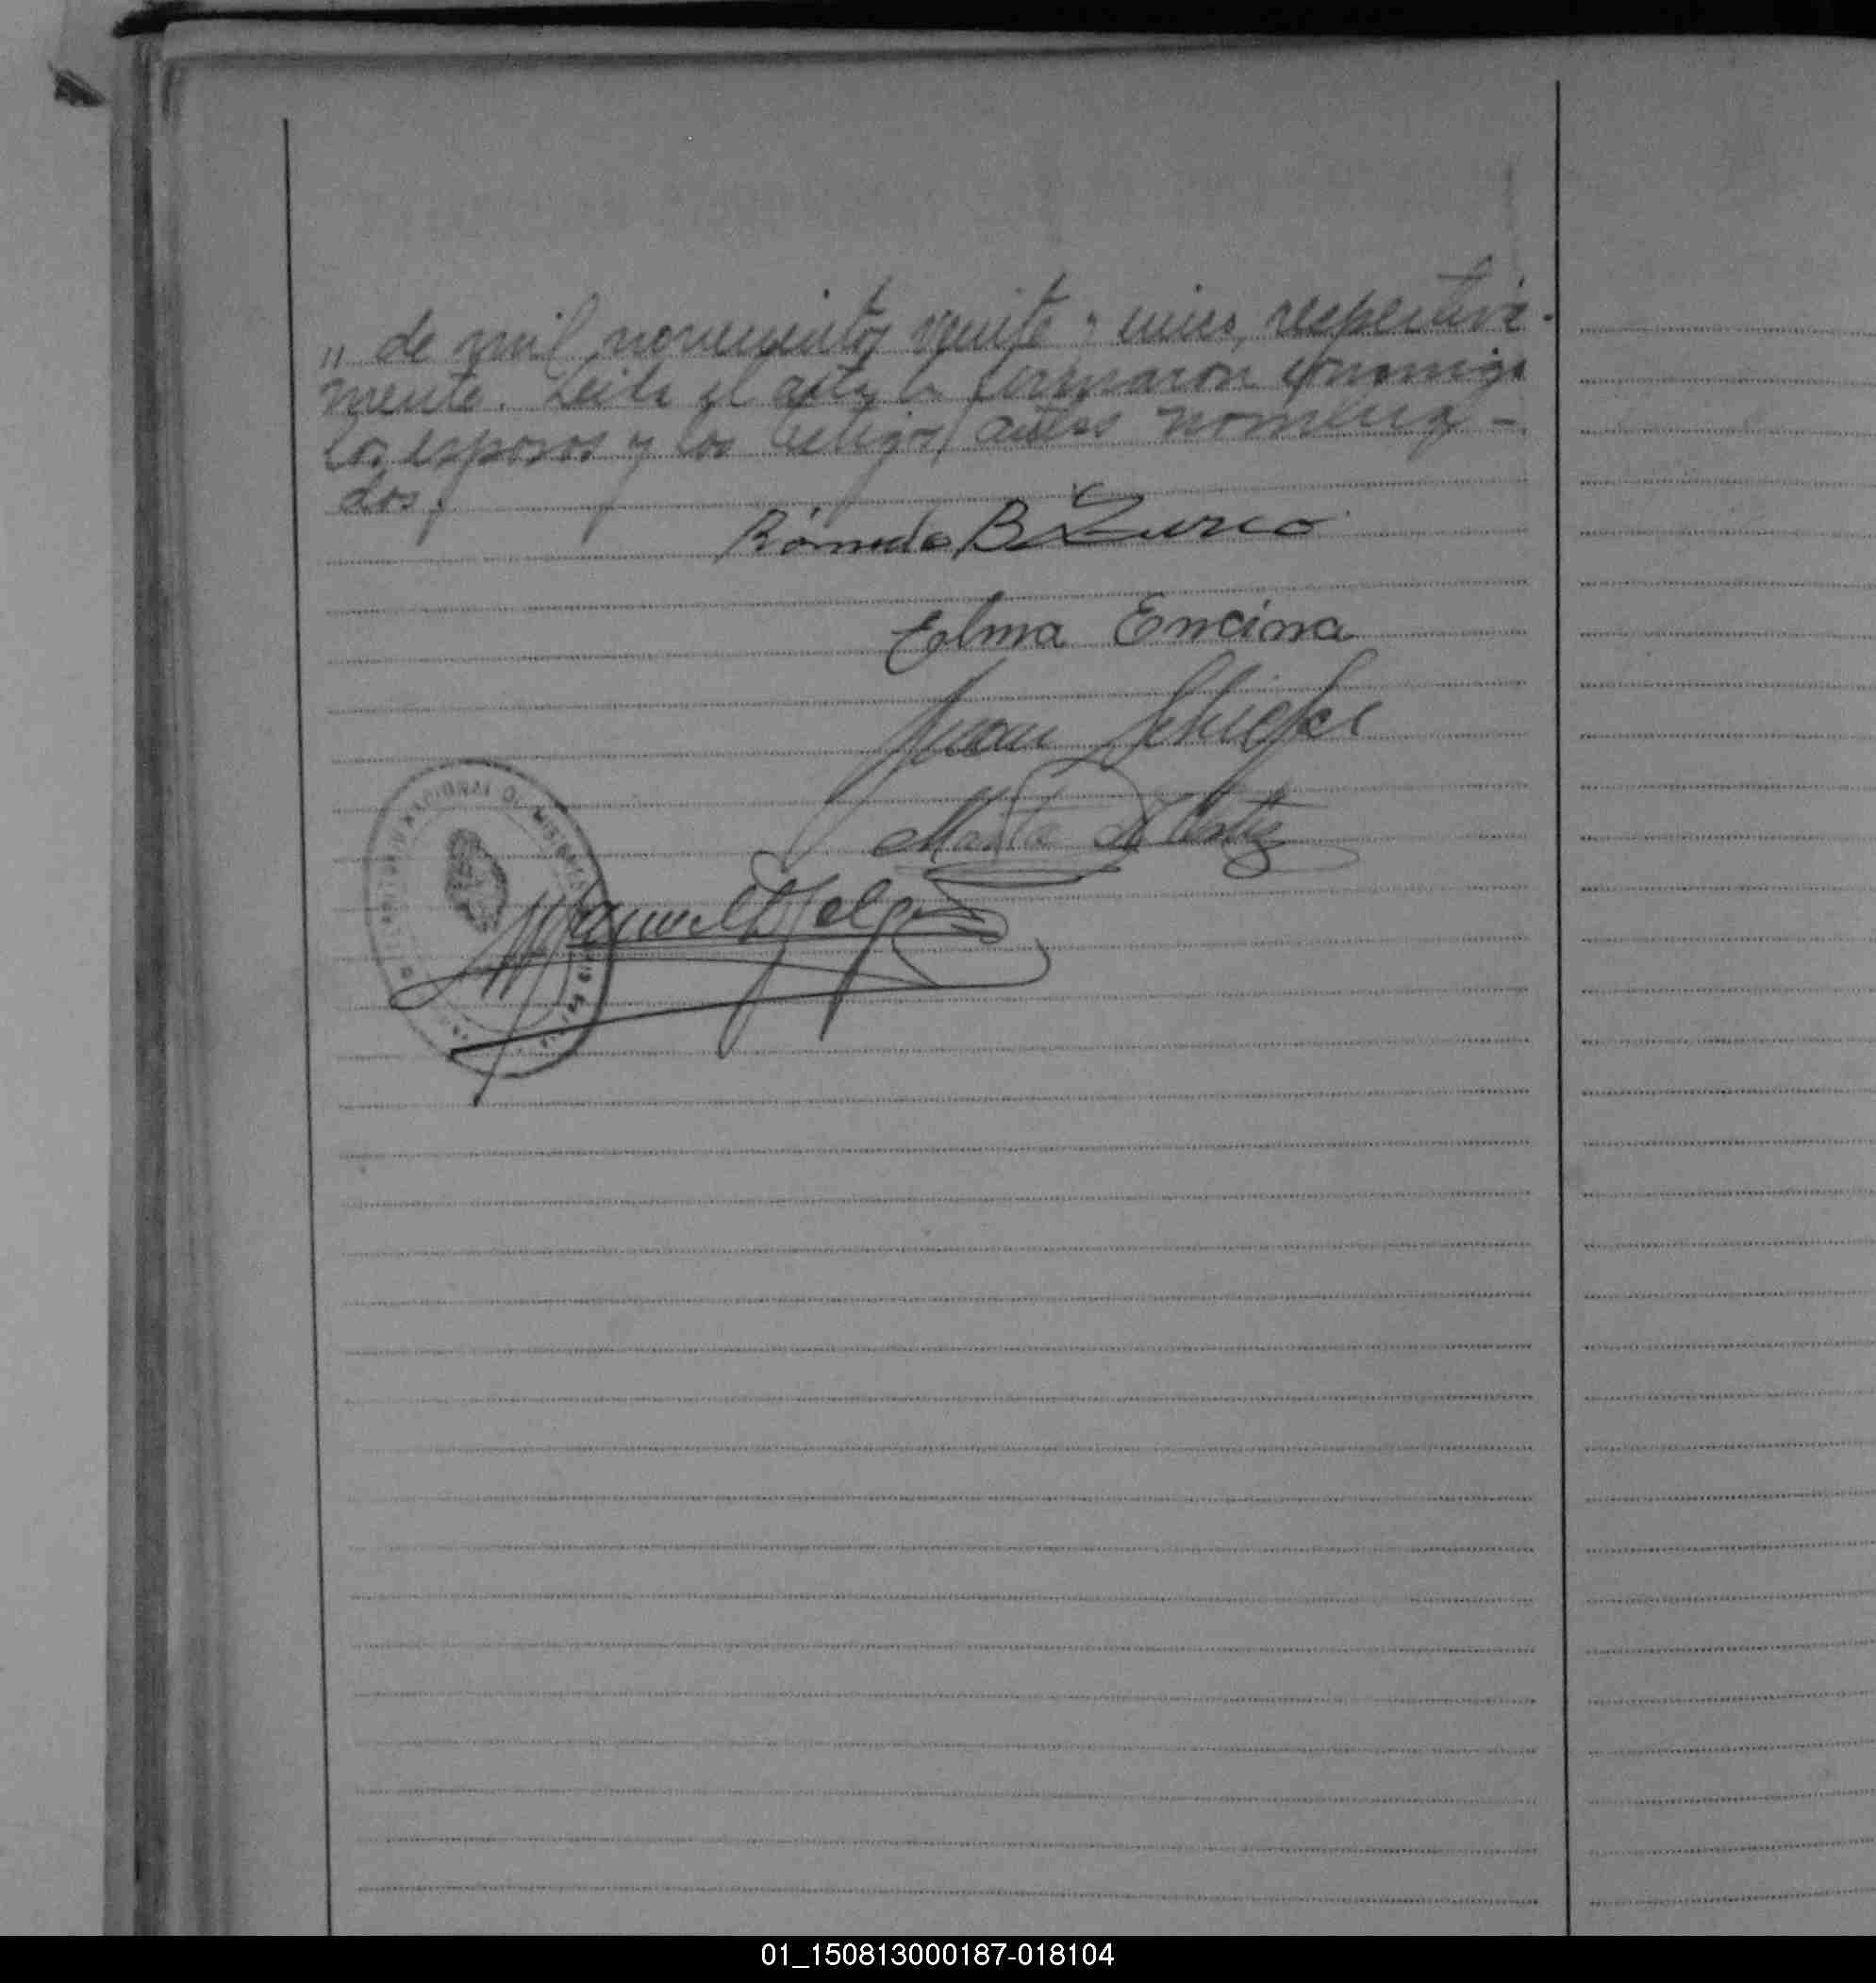 „ de mil novecientos veinte y cinco, respectiva-
mente. Leida el acta, la firmaron conmigo
los esposos y los testigos antes nombra-
dos.
Rómulo B Zurco
Elma Encina
Juan
Marta
Manuel
NACIONAL DE MISIONES
01_150813000187-018104